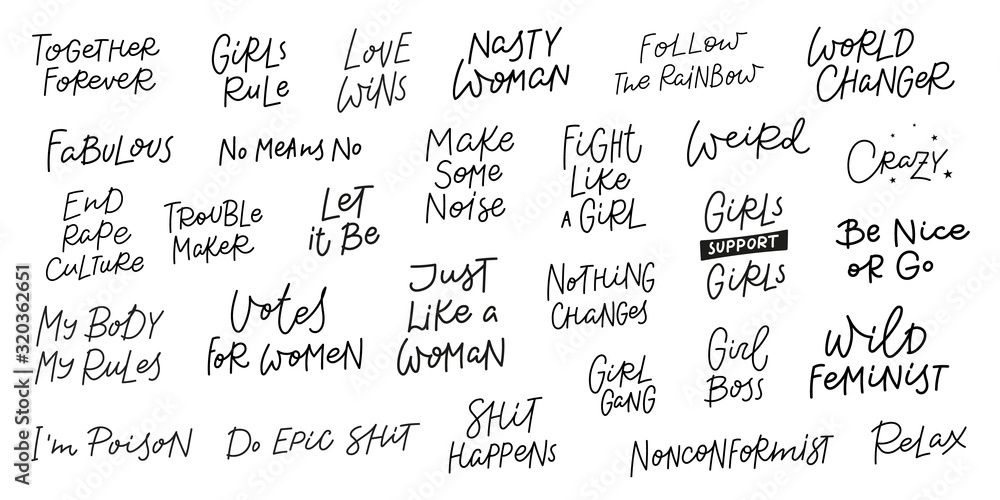 Together
Forever
Girls
Rule
Love
Wins
Nasty
Woman
Follow
The Rainbow
World
Changer
Fabulous
No Means No
Make
Some
Noise
Fight
Like
a Girl
Weird
Crazy
End
Rape
Culture
Trouble
Maker
Let
it Be
Girls
SUPPORT
Girls
Be Nice
or Go
My Body
My Rules
Votes
for Women
Just
Like a
Woman
Nothing
Changes
Girl
Gang
Girl
Boss
Wild
Feminist
I'm Poison
Do Epic Shit
Shit
Happens
Nonconformist
Relax
Adobe Stock | #320362651
Adobe Stock